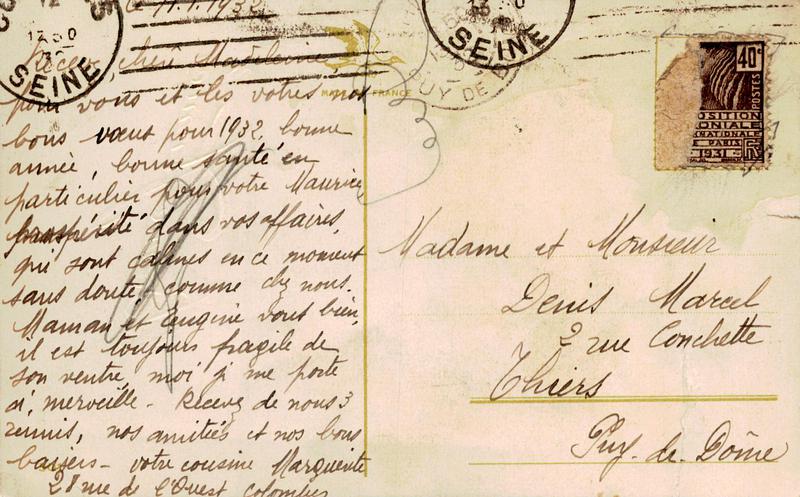 le 11.1.1932
Recevez, chère Madeleine
pour vous et les vôtres nos
bons vœux pour 1932, bonne
année, bonne santé en
particulier pour votre Maurice
prospérité dans vos affaires,
qui sont calmes en ce moment
sans doute, comme chez nous.
Maman et Eugène vont bien,
il est toujours fragile de
son ventre, moi je me porte
à merveille - Recevez de nous 3
réunis, nos amitiés et nos bons
baisers - votre cousine Marguerite
28 rue de l'Ouest Colombes
FRANCE
SEINE
1230
SEINE
PUY DE D
40c
POSTES
POSITION
ONIALE
RNATIONALE
DE PARIS
1931
Madame et Monsieur
Denis Marcel
2 rue Conchette
Thiers
Puy-de-Dôme